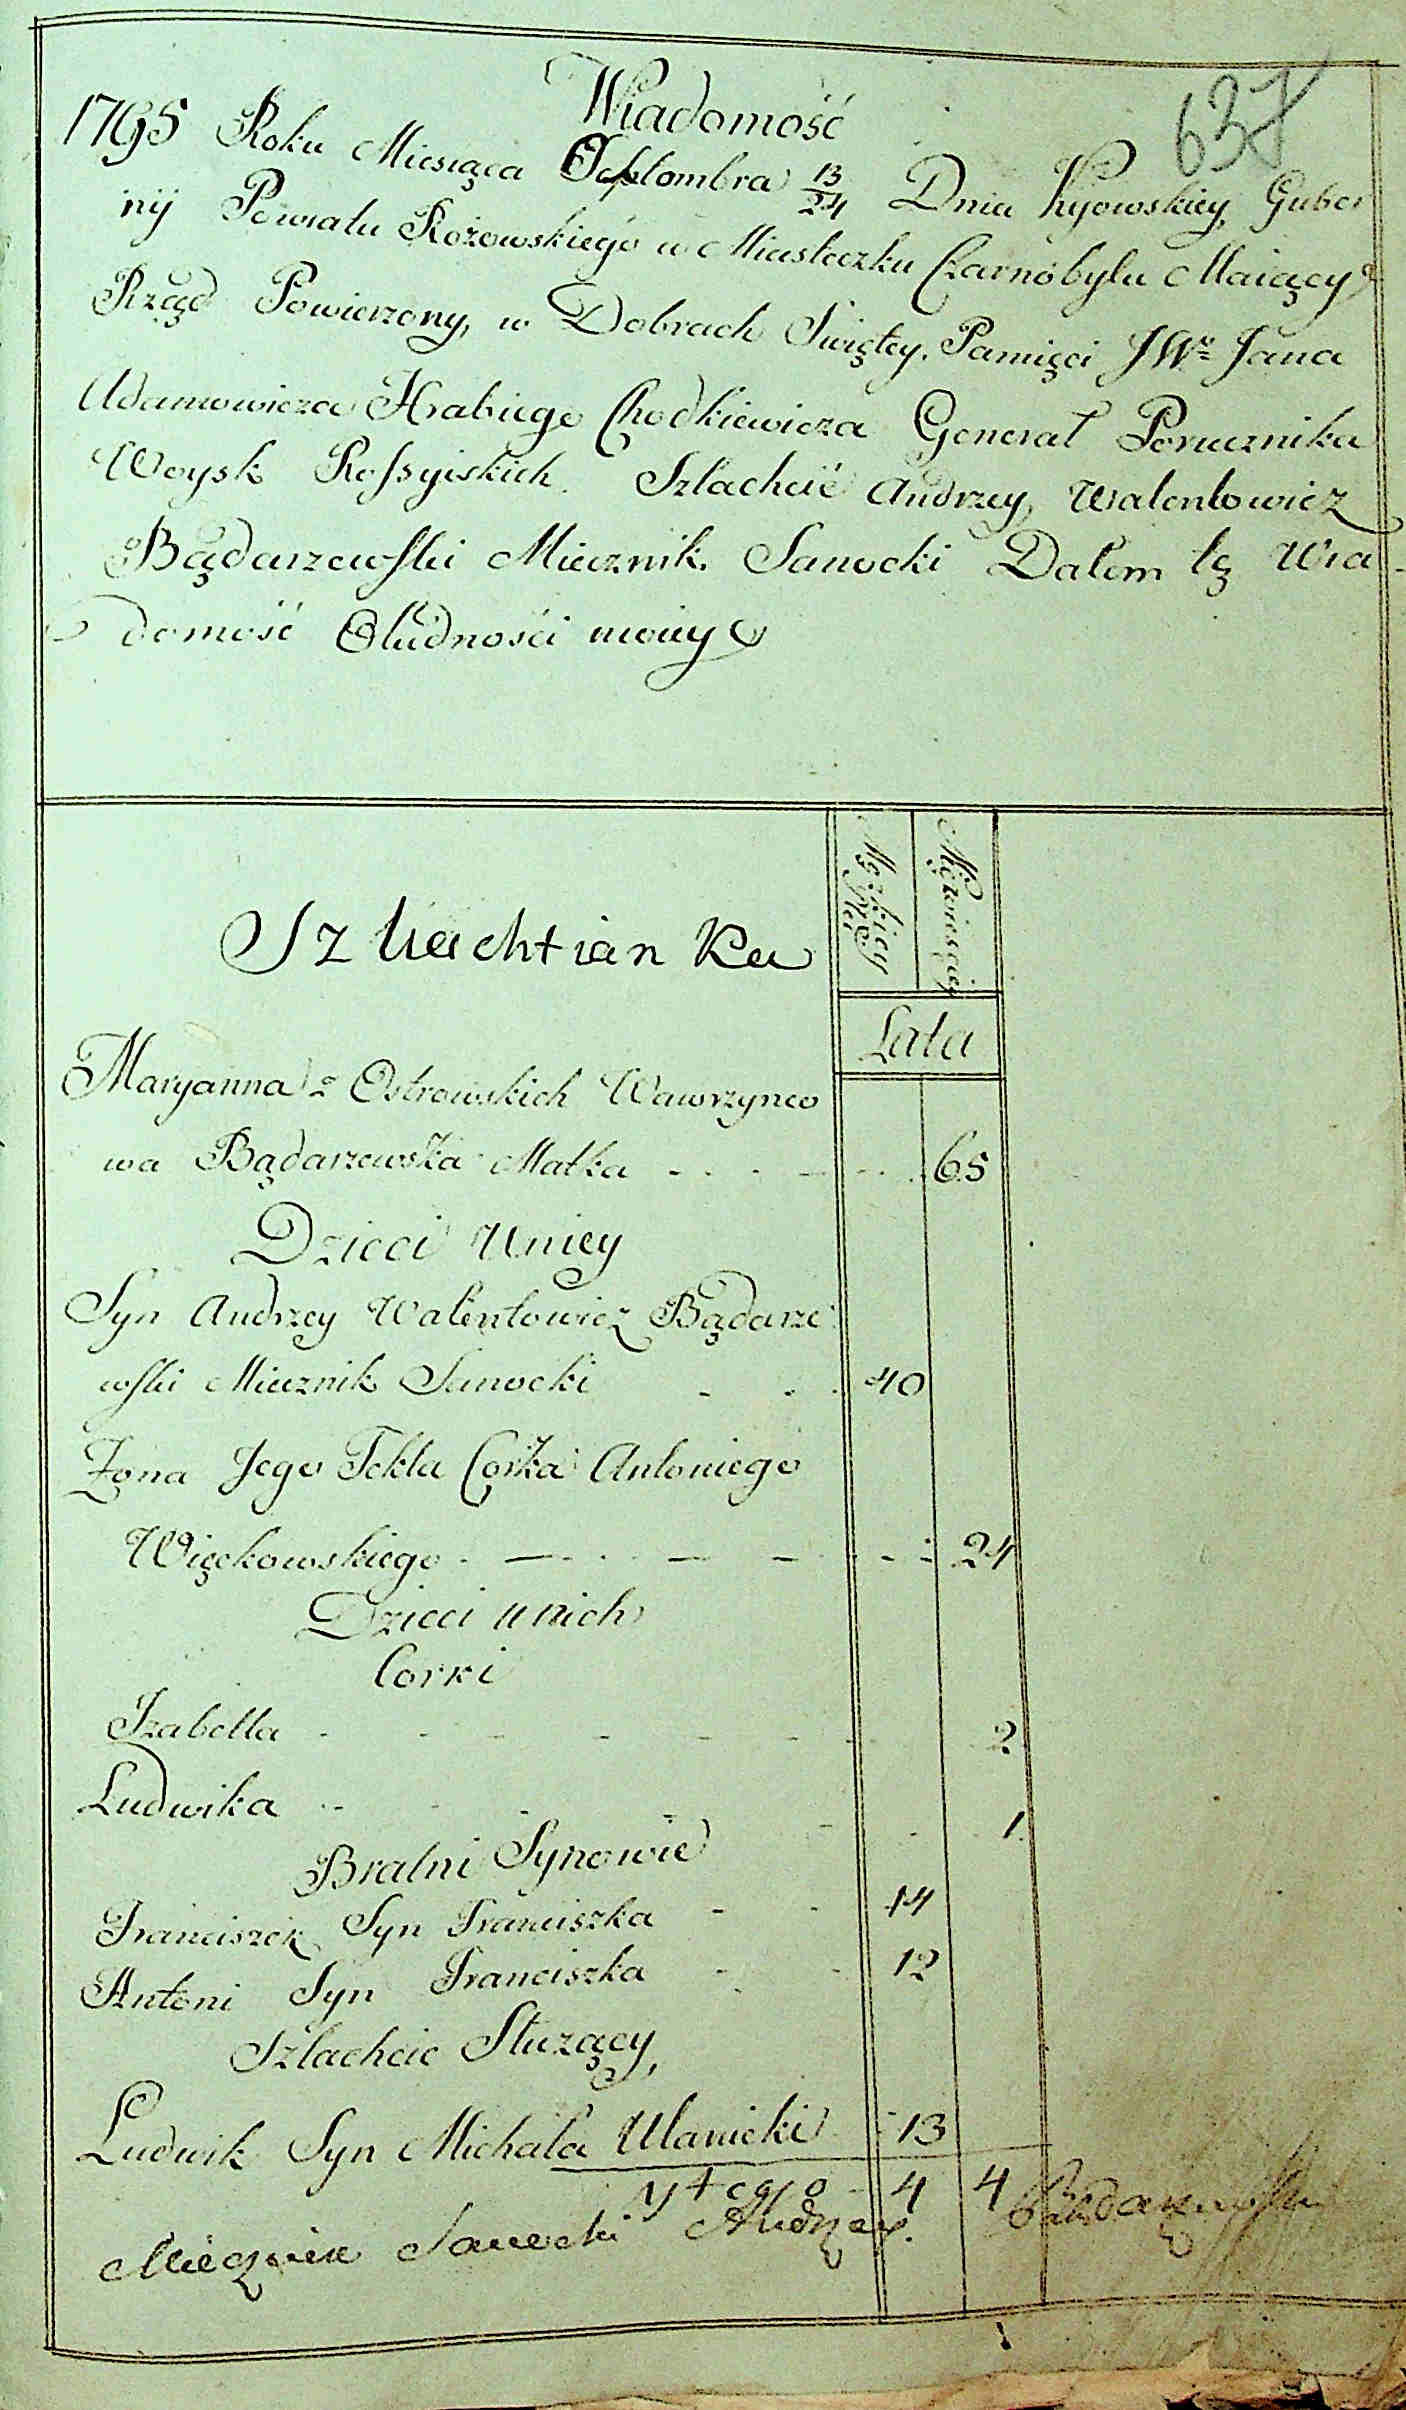 637
Wiadomość
1795 Roku Miesiąca Septembra 13/24 Dnia Kyowskiey Guber
nij Powiatu Rożowskiego w Miasteczku Czarnobylu Maiący
Rząd Powierzony, w Dobrach Swiętey Pamięci JWo Jana
Adamowicza Hrabiego Chodkiewicza Generał Porucznika
Woysk Rossyiskich Szlachcić Andrzey Walentowicz
Bądarzewski Miecznik Sanocki Dałem tę Wia
domość Oludności moiey
Męzkiey Płci
Niewiesciey
Szlachtianka
Lata
Maryanna z Ostrowskich Wawrzynco
wa Bądarzewska Matka 65
Dzieci Uniey
Syn Andrzey Walentowicz Bądarze
wski Miecznik Sanocki 40
Żona Jego Tekla Corka Antoniego
Więckowskiego 24
Dzieci unich
Corki
Izabella 2
Ludwika 1
Bratni Synowie
Franciszek Syn Franciszka 14
Antoni Syn Franciszka 12
Szlachcic Służący
Ludwik Syn Michała Ulanicki 13
ytogo 4 4
Miecznik Sanocki Andrzey Bądarzewski